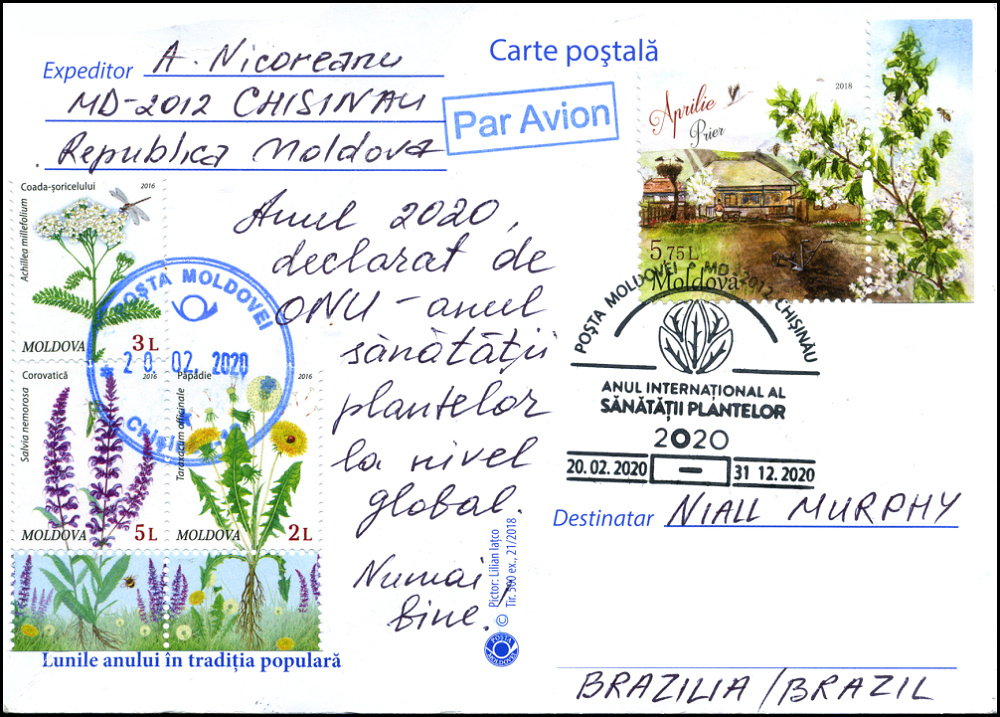 Expeditor A. Nicoreanu
MD-2012 CHISINAU
Republica Moldova
Carte poştală
Par Avion
Aprilie
Prier
2018
5,75L
Moldova
Coada-şoricelului
2016
Achillea millefolium
MOLDOVA 3 L
POŞTA MOLDOVEI
20. 02. 2020
Corovatică
2016
Salvia nemorosa
MOLDOVA 5 L
Păpădie
2016
Taraxacum officinale
MOLDOVA 2 L
Lunile anului în tradiţia populară
Anul 2020,
declarat de
ONU - anul
sănătăţii
plantelor
la nivel
global.
Numai
bine.
POŞTA MOLDOVEI MD-2012 CHIŞINĂU
ANUL INTERNAŢIONAL AL
SĂNĂTĂŢII PLANTELOR
2020
20.02.2020 – 31 12.2020
Destinatar NIALL MURPHY
BRAZILIA/BRAZIL
© Pictor: Lilian Iaţco
Tir. 500 ex., 21/2018
POŞTA
MOLDOVEI